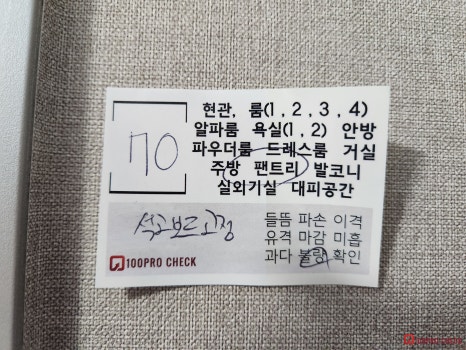 70
현관, 룸(1, 2, 3, 4)
알파룸 욕실(1, 2) 안방
파우더룸 드레스룸 거실
주방 팬트리 발코니
실외기실 대피공간
석고보드 고정
들뜸 파손 이격
유격 마감 미흡
과다 불량 확인
100PRO CHECK